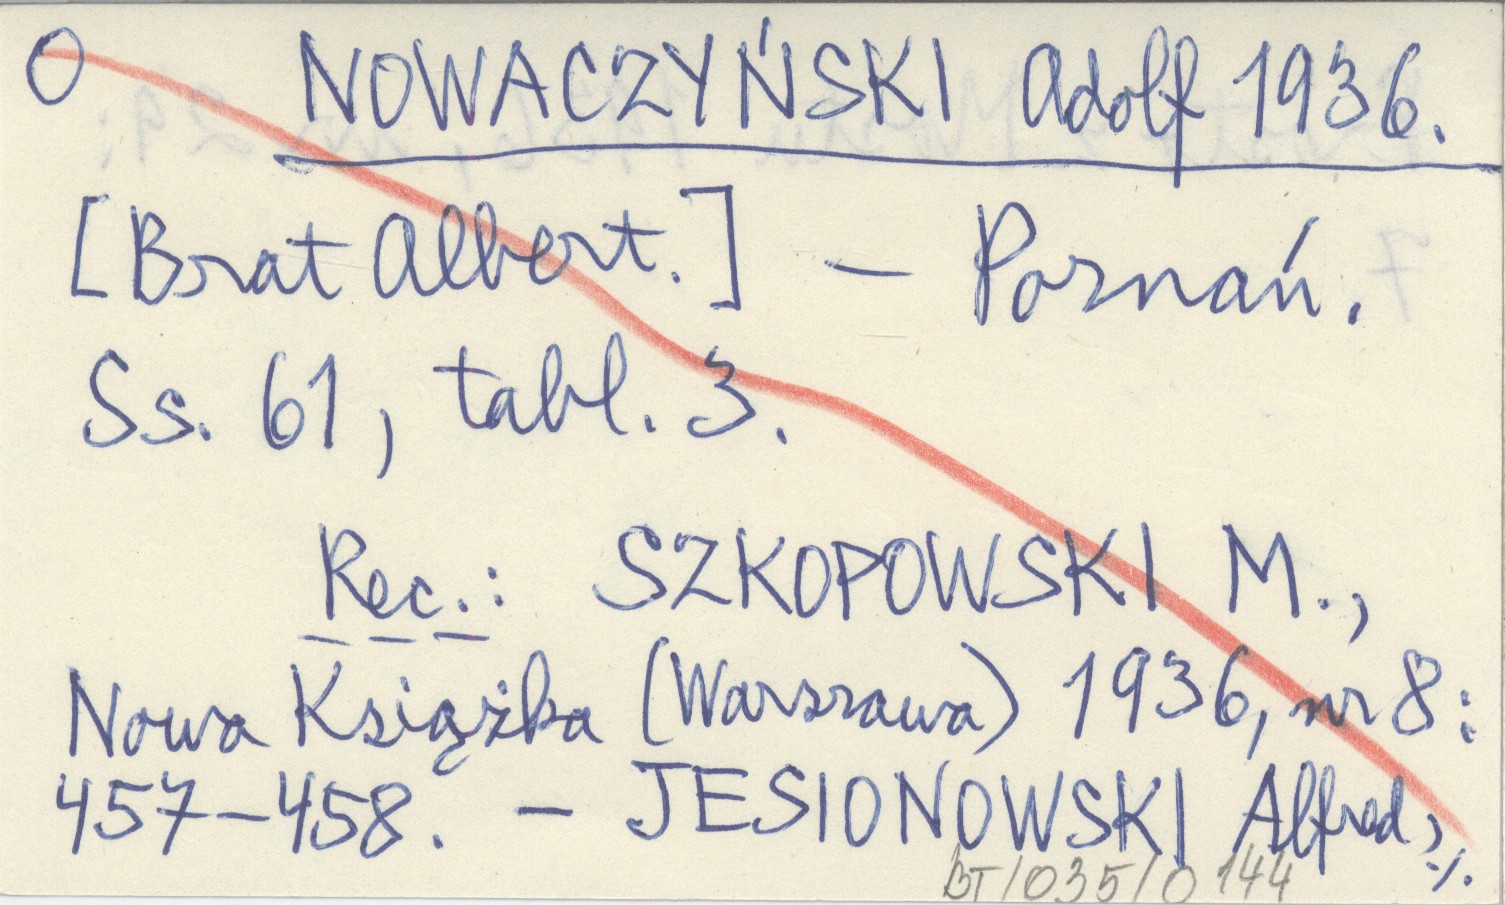 O NOWACZYŃSKI Adolf 1936.
[Brat Albert.] – Poznań.
Ss. 61, tabl. 3.
Rec.: SZKOPOWSKI M.,
Nowa Książka (Warszawa) 1936, nr 8:
457–458. – JESIONOWSKI Alfred, ./.
BT/035/0144